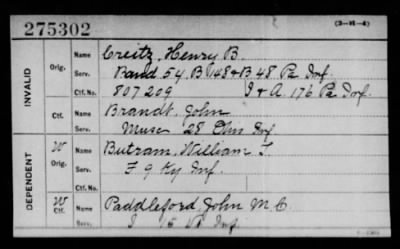 275302 (3-H-4)
INVALID
Orig. Name Creitz, Henry B.
Serv. Band 54, B 148 & B 48 Pa Inf.
Ctf. No. 807209 I & A. 176 Pa Inf.
Ctf. Name Brandt, John
Serv. Musc 28 Ohio Inf
DEPENDENT
W Orig. Name Butram, William T.
Serv. F 9 Ky Inf.
W Ctf. Name Paddleford, John M. C.
Serv. I 15 Vt Inf.